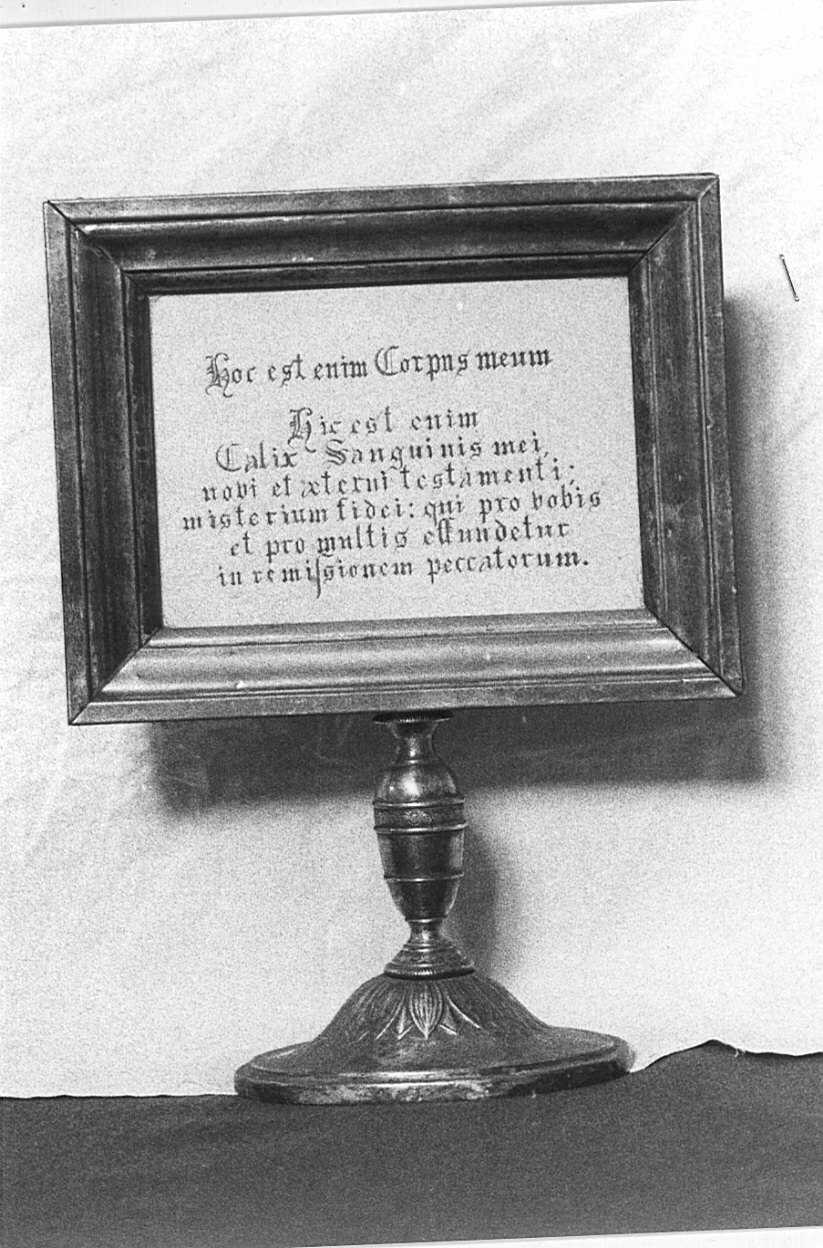 Hoc est enim Corpus meum
Hic est enim
Calix Sanguinis mei,
novi et æterni testamenti:
misterium fidei: qui pro vobis
et pro multis effundetur
in remissionem peccatorum.